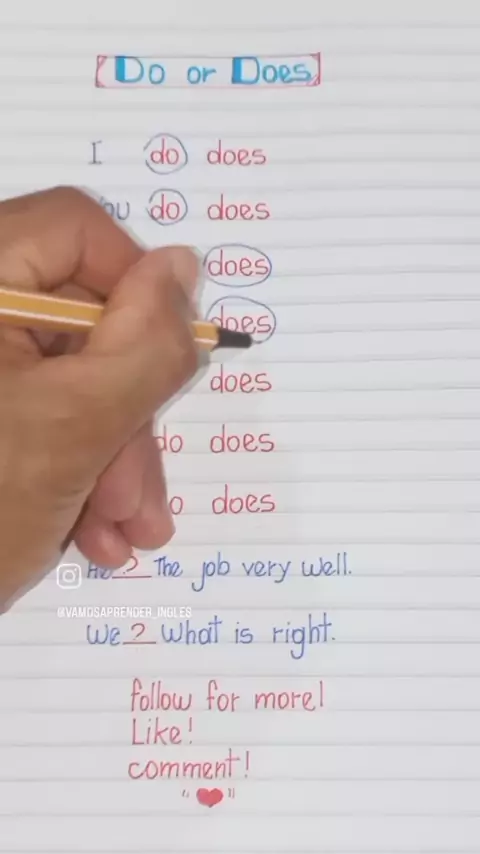 Do or Does
I do does
do does
does
does
does
do does
does
He ? The job very well.
@VAMOSAPRENDER_INGLES
We ? What is right.
follow for more!
Like!
comment!
"❤"